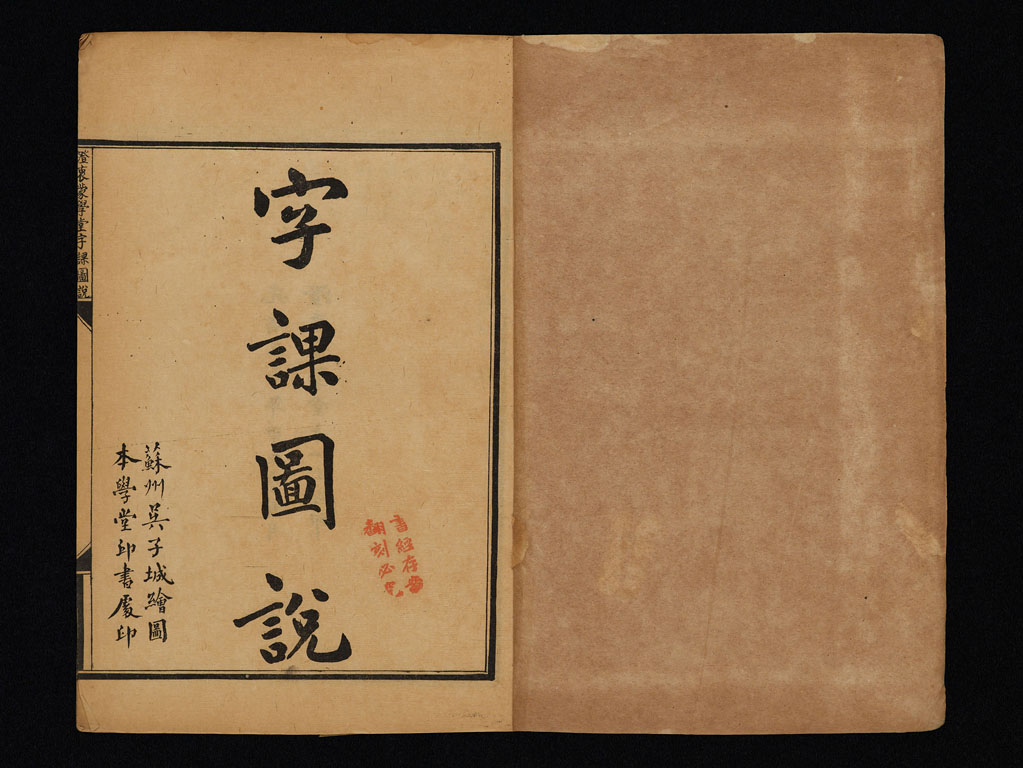 字課圖說
蘇州吳子城繪圖
本學堂印書處印
書經存案
翻刻必究
澄衷蒙學堂字課圖說